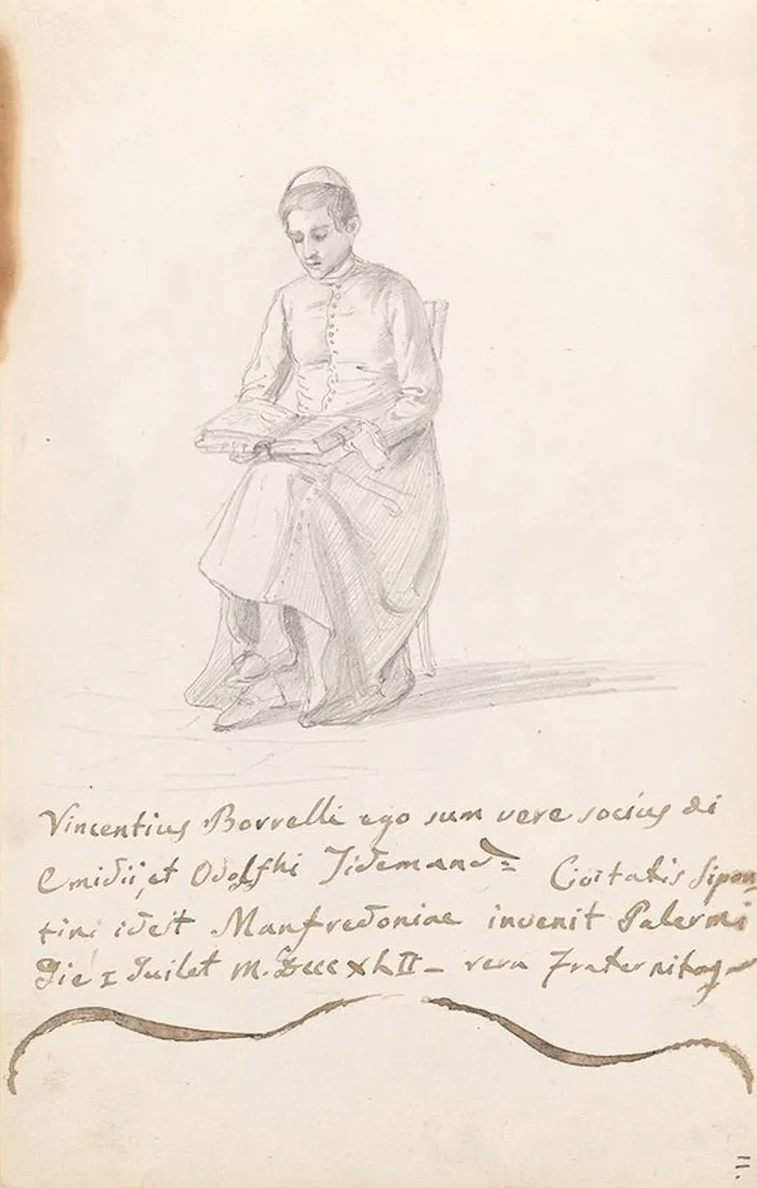 Vincentius Borrelli ego sum vere socius di
Emidii, et Odolfhi Tidemand= Civitatis Sipon
tini idest Manfredoniae invenit Palermi
Die I Juilet M.DcccXLII_ vera Fraternitas